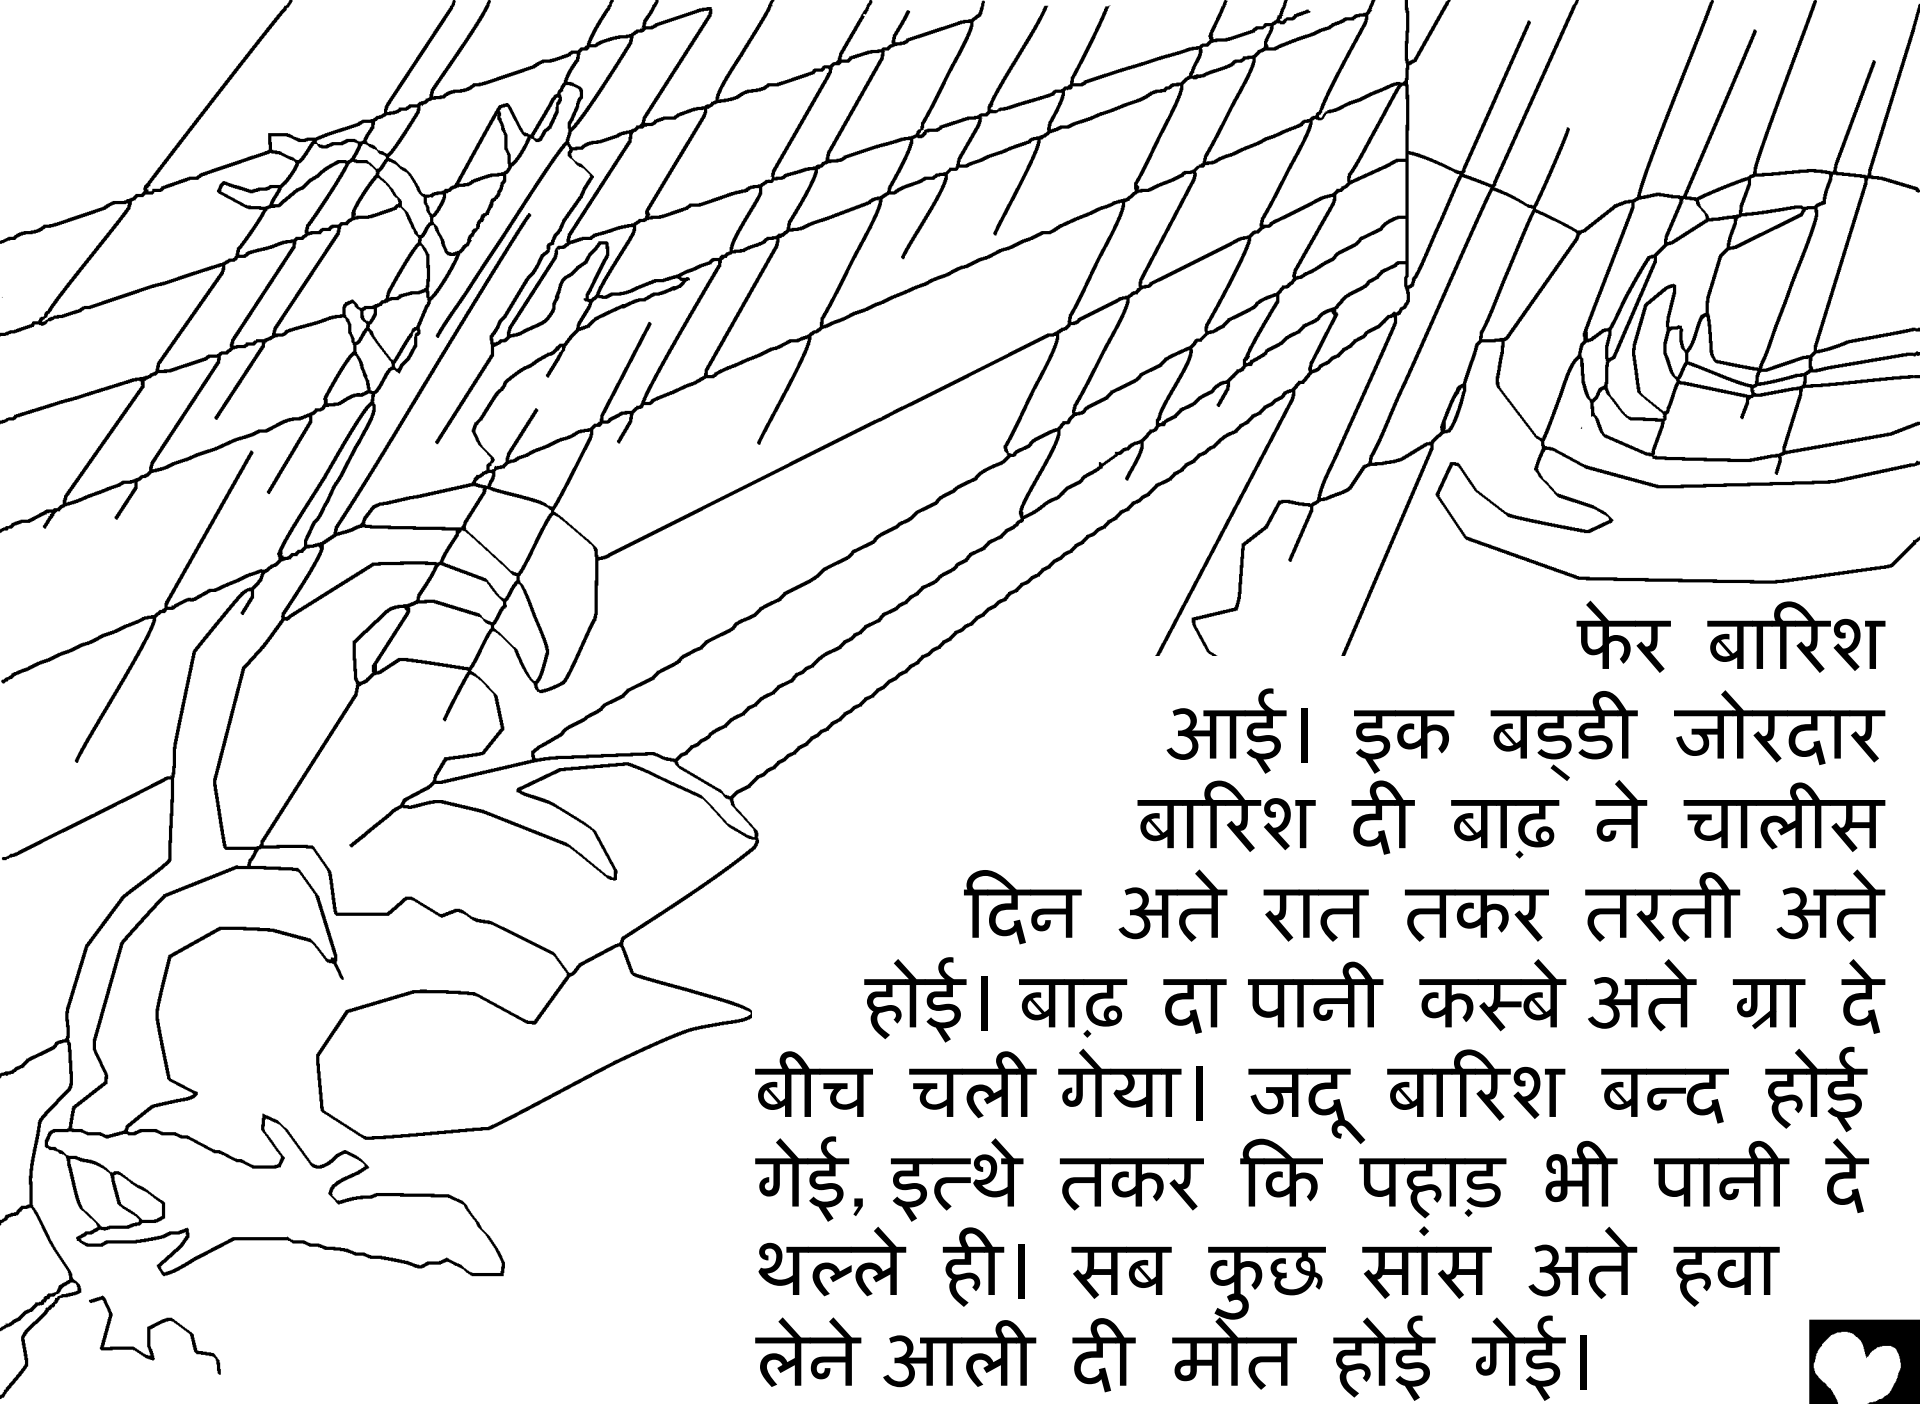 फेर बारिश
आई। इक बड्डी जोरदार
बारिश दी बाढ़ ने चालीस
दिन अते रात तकर तरती अते
होई। बाढ़ दा पानी कस्बे अते ग्रा दे
बीच चली गेया। जदू बारिश बन्द होई
गेई, इत्थे तकर कि पहाड़ भी पानी दे
थल्ले ही। सब कुछ सांस अते हवा
लेने आली दी मोत होई गेई।